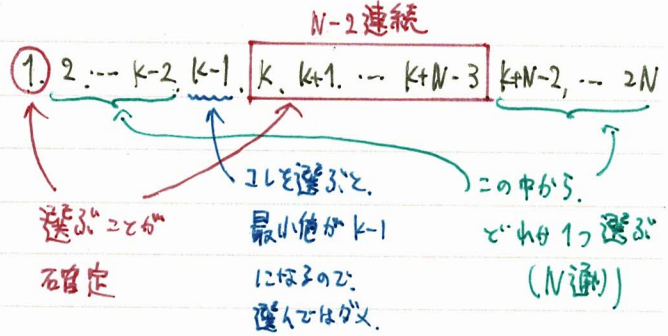 N-2連続
1. 2. … k-2. k-1. k. k+1. … k+N-3 k+N-2, … 2N
選ぶことが
確定
コレを選ぶと、
最小値が k-1
になるので、
選んではダメ.
この中から、
どれか1つ選ぶ
(N通り)